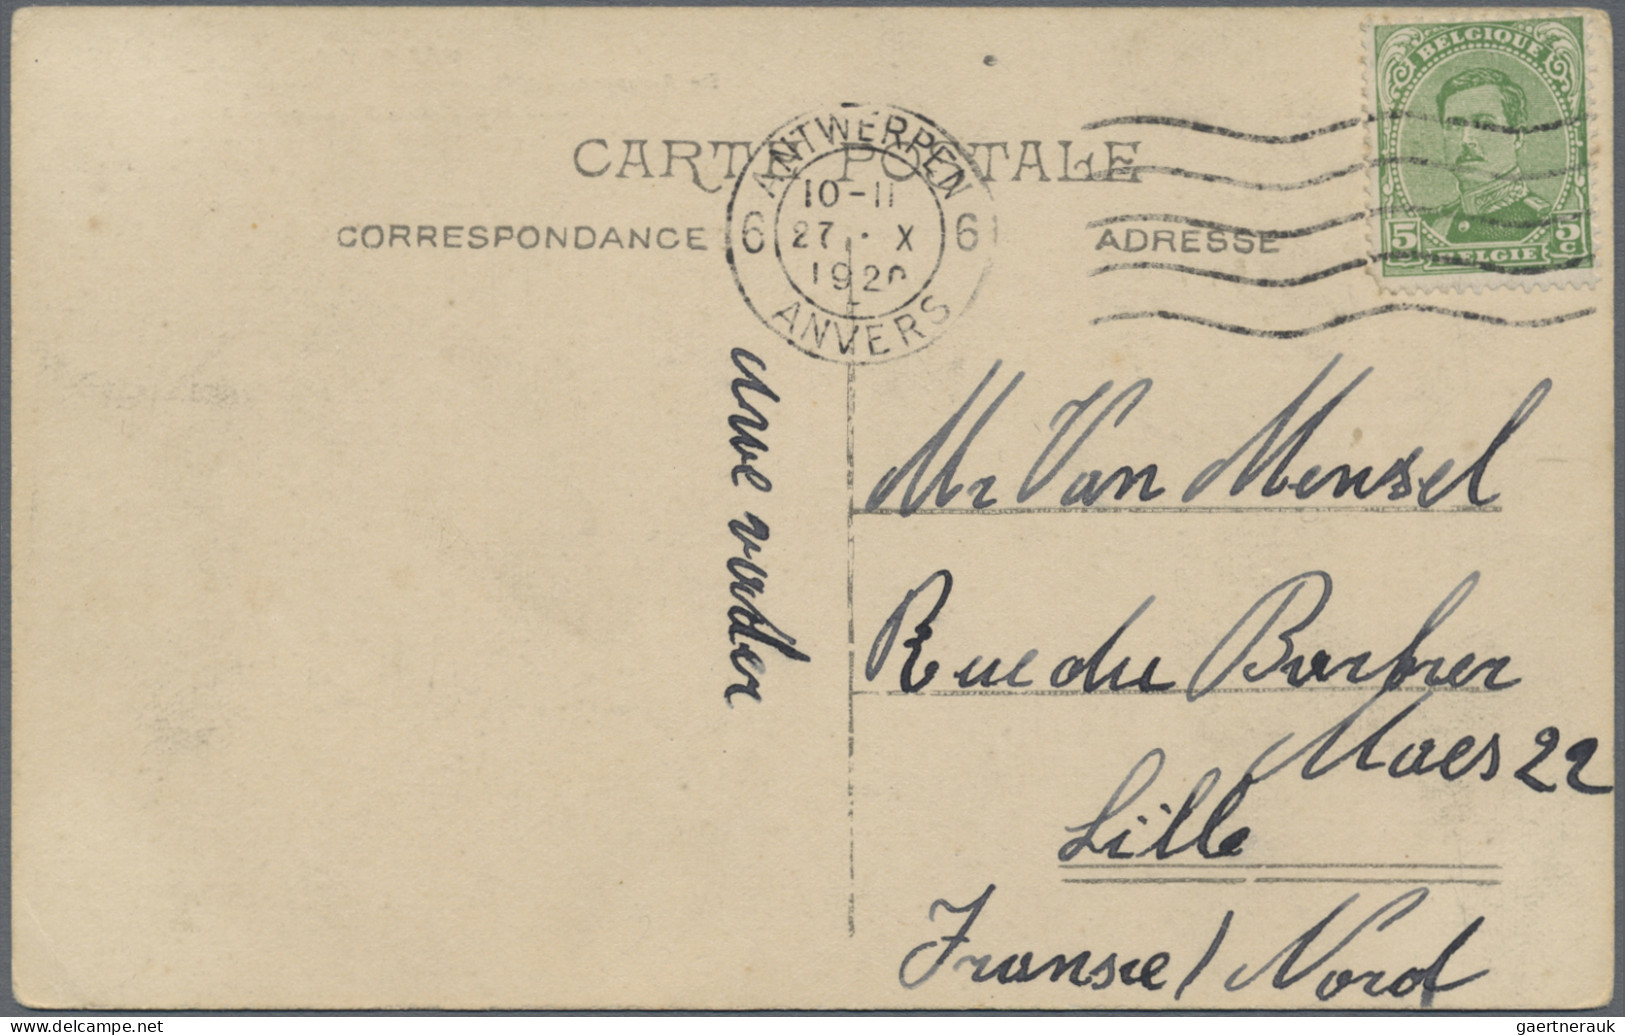 CARTE POSTALE
CORRESPONDANCE
ADRESSE
ANTWERPEN
6 10-11 6
27 · X
1920
ANVERS
BELGIQUE
5 BELGIE 5c
uwe vader
Mr Van Mensel
Rue du Barbier
Maes 22
Lille
Franse / Nord
gaertnerauk